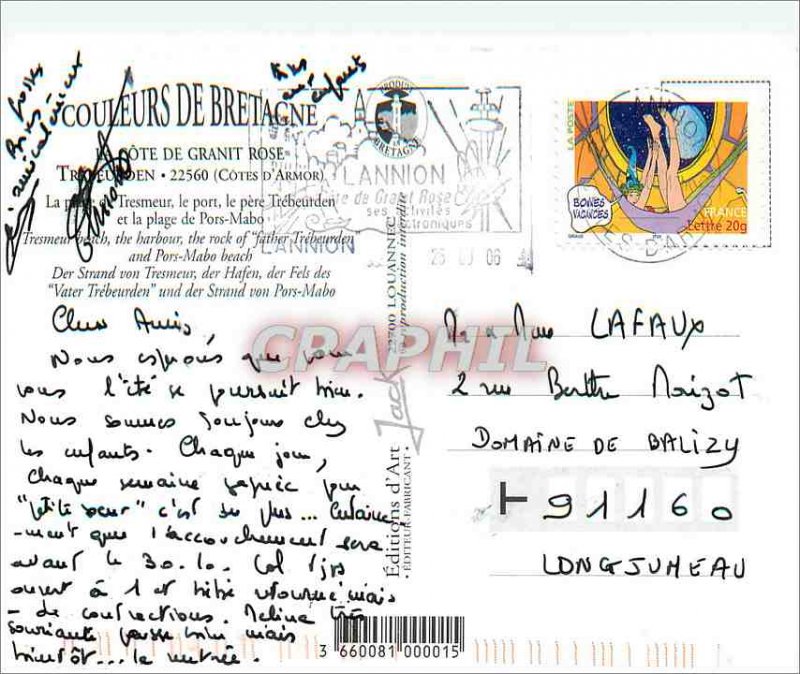 COULEURS DE BRETAGNE
LA CÔTE DE GRANIT ROSE
TRÉBEURDEN • 22560 (CÔTES D'ARMOR)
La plage de Tresmeur, le port, le père Trébeurden
et la plage de Pors-Mabo
Tresmeur beach, the harbour, the rock of "father Trébeurden
and Pors-Mabo beach
Der Strand von Tresmeur, der Hafen, der Fels des
"Vater Trébeurden" und der Strand von Pors-Mabo
Grosses
Bises
aux enfants
PRODUIT EN BRETAGNE
LANNION
Côte de Granit Rose
ses activités
électroniques
LANNION
06
LA POSTE
BONNES VACANCES
FRANCE
Lettre 20g
Chers Amis,
Nous espérons que pour
vous l'été se poursuit bien.
Nous sommes toujours chez
les enfants. Chaque jour,
chaque semaine gagnée pour
"petite soeur" c'est du plus... Certaine
-ment que l'accouchement sera
avant le 30.10. Col tjrs
ouvert à 1 et bébé retourné mais
- de contractions. Mélina très
souriante passe bien mais
bientôt... la rentrée.
Editions d'Art Jack 22700 LOUANNEC
• EDITEUR-FABRICANT • reproduction interdite
Mr & Mme LAFAUX
2 rue Berthe Morizot
DOMAINE DE BALIZY
91160
LONGJUMEAU
CPAPHIL
3 660081 000015